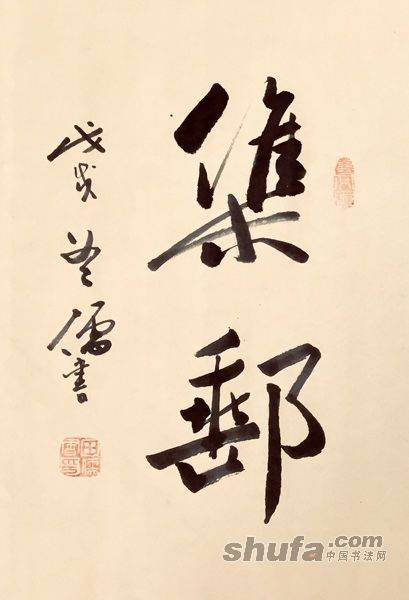 集郵
戊戌 儒書
shufa.com
中国书法网